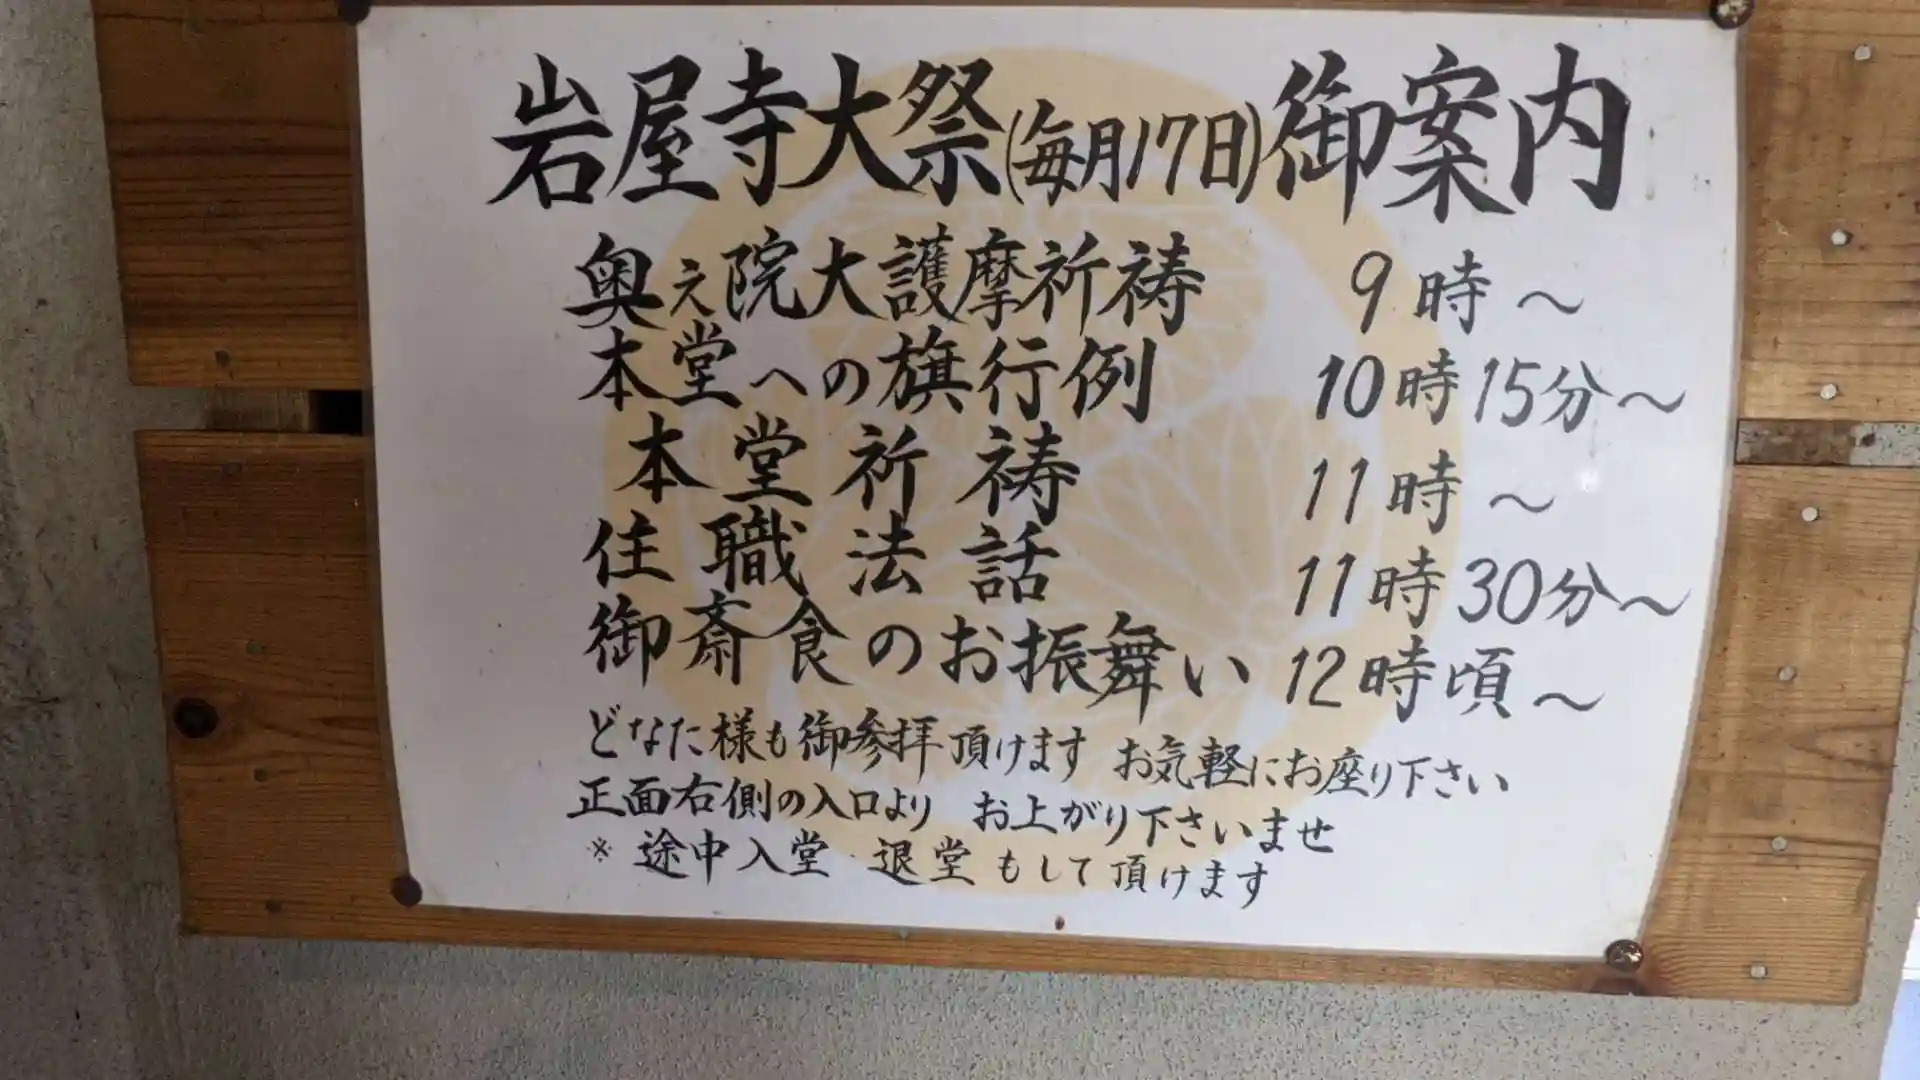 岩屋寺大祭(毎月17日)御案内
奥え院大護摩祈祷 9時～
本堂への旗行例 10時15分～
本堂祈祷 11時～
住職法話 11時30分～
御斎食のお振舞い 12時頃～
どなた様も御参拝頂けます お気軽にお座り下さい
正面右側の入口より お上がり下さいませ
※途中入堂・退堂もして頂けます